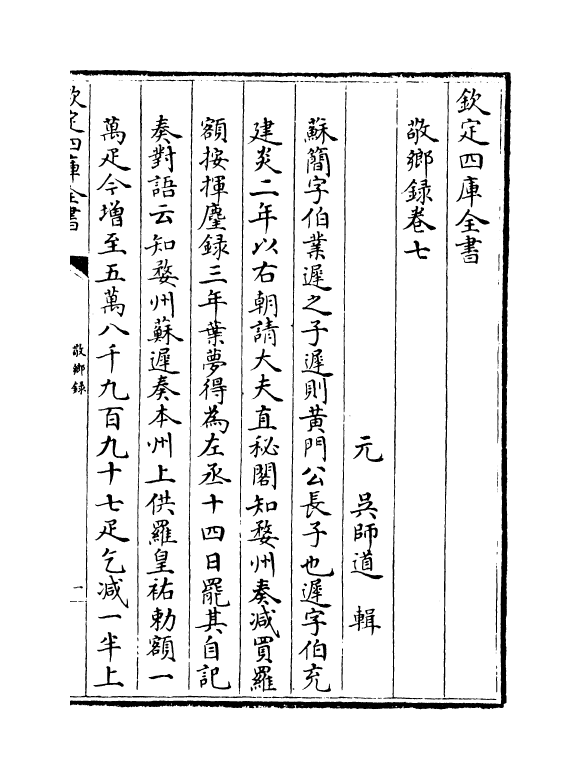 欽定四庫全書
敬鄉録卷七
元　吳師道　輯
蘇簡字伯業遲之子遲則黄門公長子也遲字伯充
建炎二年以右朝請大夫直秘閣知婺州奏減買羅
額按揮麈録三年葉夢得為左丞十四日罷其自記
奏對語云知婺州蘇遲奏本州上供羅皇祐勅額一
萬疋今增至五萬八千九百九十七疋乞减一半上
欽定四庫全書
敬鄉録
一